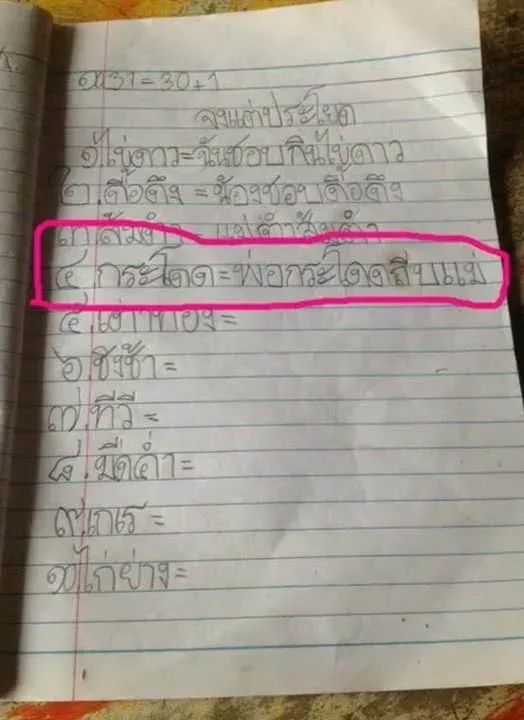 ๑๗ 31 = 30+1
จงแต่ประโยค
๑. ไข่ดาว = ฉันชอบกินไข่ดาว
๒. ดื้อดึง = น้องชอบดื้อดึง
๓. ส้มตำ = แม่ตำส้มตำ
๔. กระโดด = พ่อกระโดดถีบแม่
๕. เต่าทอง =
๖. ชิงช้า =
๗. ทีวี =
๘. มืดค่ำ =
๙. เกเร =
๑๐ ไก่ย่าง =